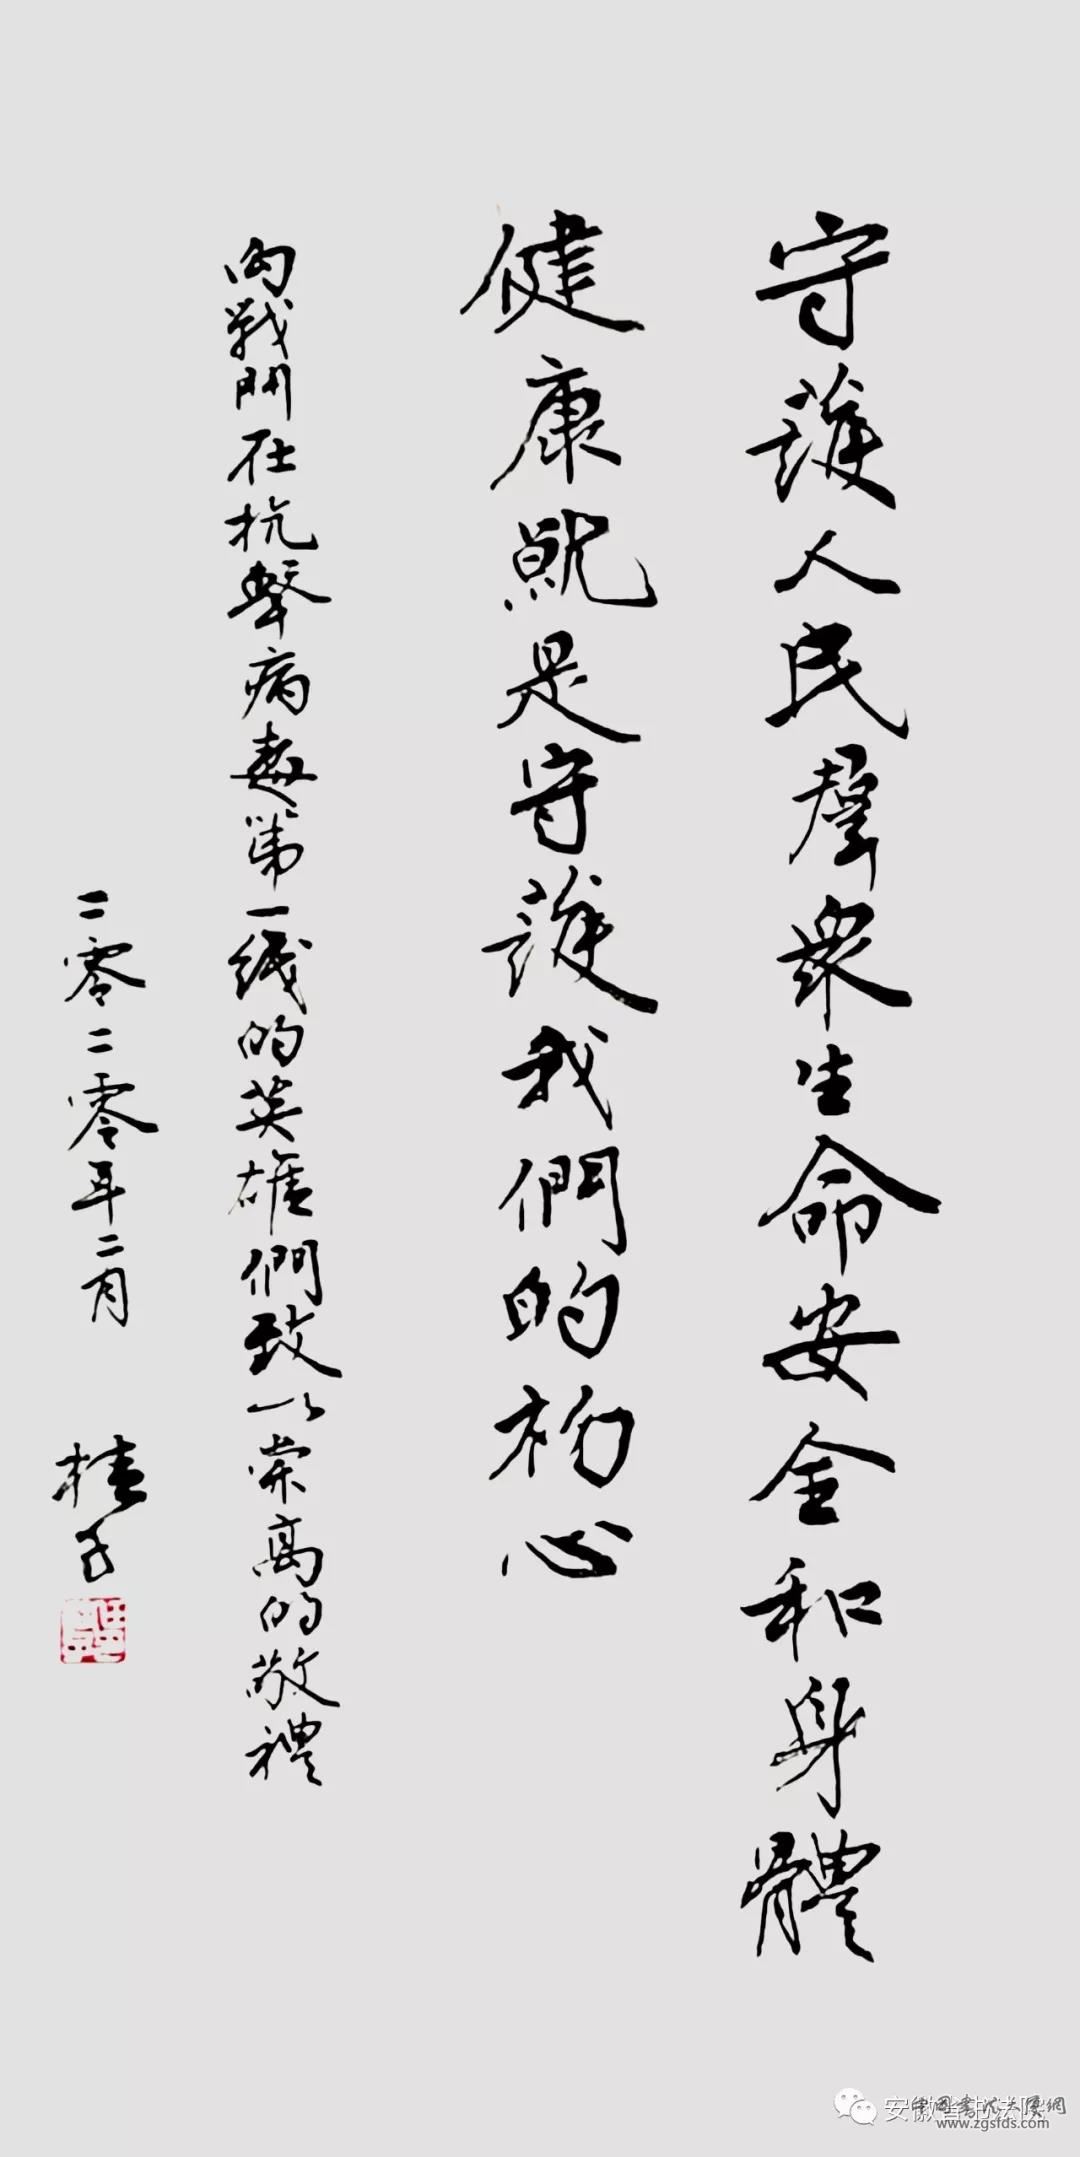 守護人民羣眾生命安全和身體
健康就是守護我們的初心
向戰鬥在抗擊病毒第一綫的英雄們致以崇高的敬禮
二零二零年二月
安徽省书法院
中國書法大厦網
www.zgsfds.com